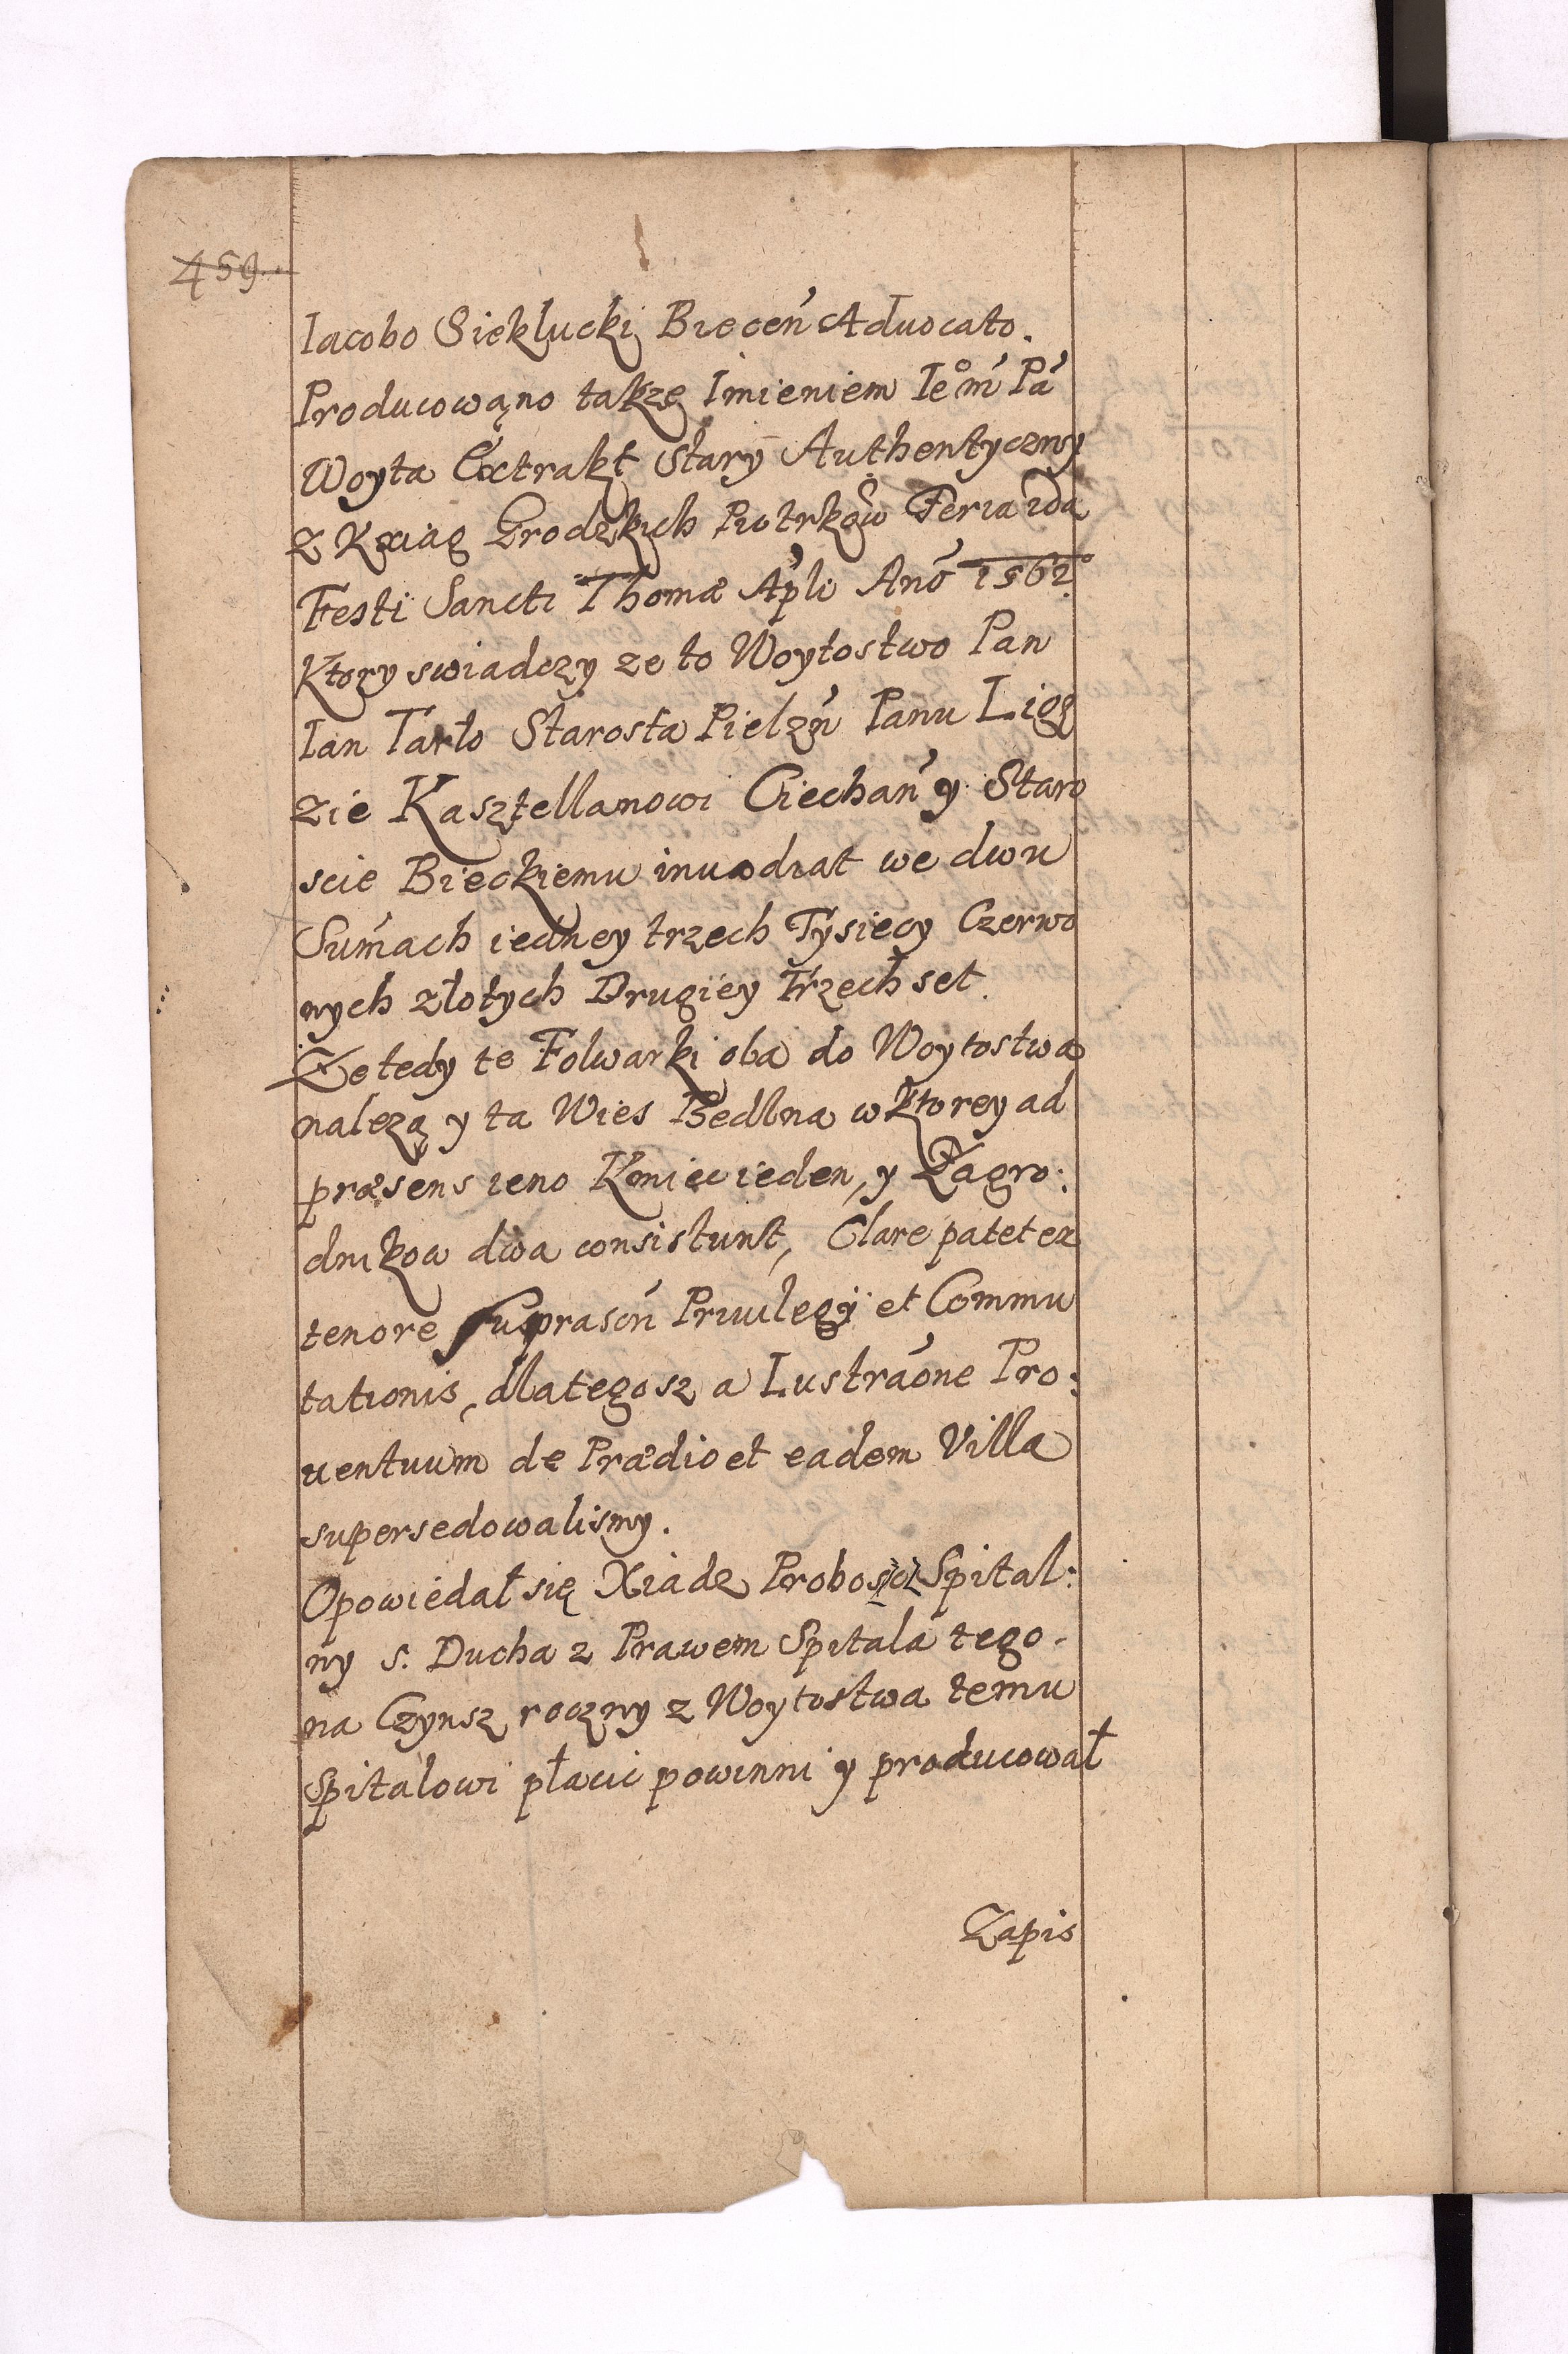 459..
Iacobo Sieklucki Bieceń Aduocato.
Producowąno takze Imieniem Ie̊m̃ Pá
Woyta Extrakt Stary Authentyczny
z Kxiąg Grodzkich Piotrków Feria 2da
Festi Sancti Thomæ Apl̃i Anõ 1562°
Ktory swiadczy ze to Woytostwo Pan
Ian Tarło Starosta Pielzń Panu Ligę
zie Kasztellanowi Ciechań y Staro
scie Bieckiemu inuadiat we dwu
Sum̃ach iedney trzech Tysiecy Czerwo
nych złotych Drugiey Trzechset.
Ze tedy te Folwarki oba do Woytostwa
nalezą y ta Wies Bedlna w ktorey ad
præsens ieno Kmiec ieden, y Zagro:
dnikow dwa consistunt, Clare patet ex
tenore suprascń Priuilegÿ et Commu
tationis, dlategosz a Lustraóne Pro:
uentuum de Prædio et eadem Villa
supersedowalismy.
Opowiedał się Xiadz Probosc Spital:
ny S. Ducha z Prawem Spitala tego.
na Czynsz roczny z Woytostwa temu
Spitalowi płacic powinni y producował
Zapis